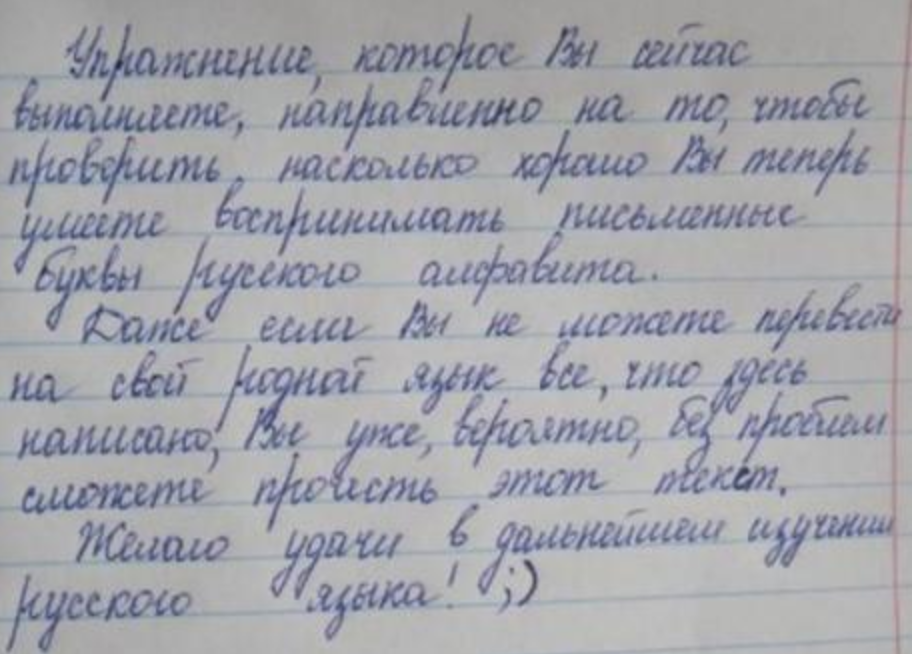 Упражнение, которое Вы сейчас
выполняете, направленно на то, чтобы
проверить, насколько хорошо Вы теперь
умеете воспринимать письменные
буквы русского алфавита.
Даже если Вы не можете перевести
на свой родной язык все, что здесь
написано, Вы уже, вероятно, без проблем
сможете прочесть этот текст.
Желаю удачи в дальнейшем изучении
русского языка! ;)